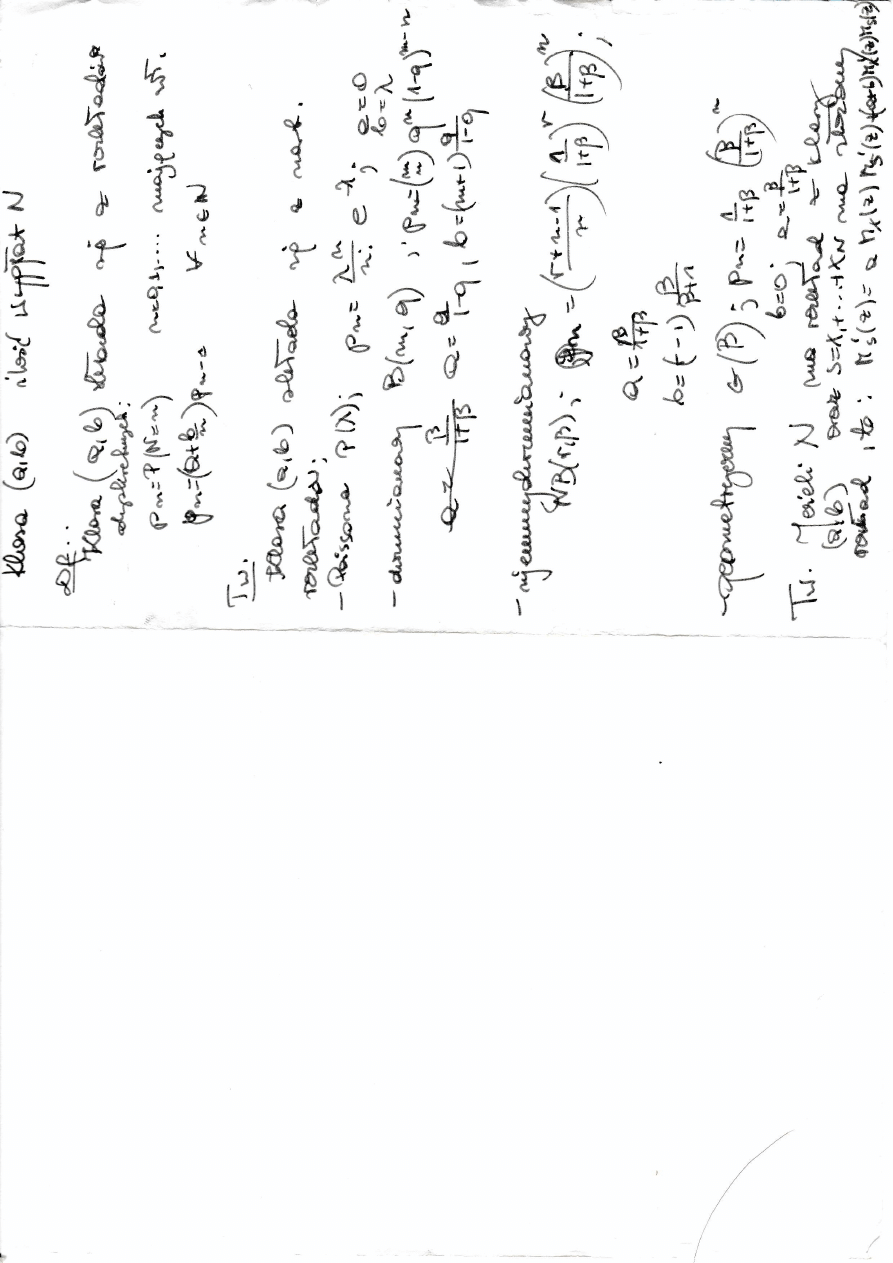 Klasa (a,b) ilość wypłat N
Df...
Klasa (a,b) składa się z rozkładów
dyskretnych:
pn=P(N=n) n=0,1,... mających wł.
pn=(a+b/n)pn-1 ∀ n∈N
Tw.
Klasa (a,b) składa się z nast.
rozkładów:
- Poissona P(λ); pn=λ^n/n! e^-λ; a=0 b=λ
- dwumianowy B(m,q); pn=(m n) q^n (1-q)^m-n
a= q/1-q, b=(m+1) q/1-q
- ujemnydwumianowy
NB(r,β); pn=(r+n-1 n)(1/1+β)^r (β/1+β)^n;
a=β/1+β
b=(r-1) β/β+1
- geometryczny G(β); pn=1/1+β (β/1+β)^n
b=0; a=β/1+β
Tw. Jeżeli N ma rozkład z klasy
(a,b) oraz S=X1+...+XN ma złożony
rozkład, to: Ms'(z)=a Mx(z) Ms'(z)+(a+b)Mx'(z)Ms(z)